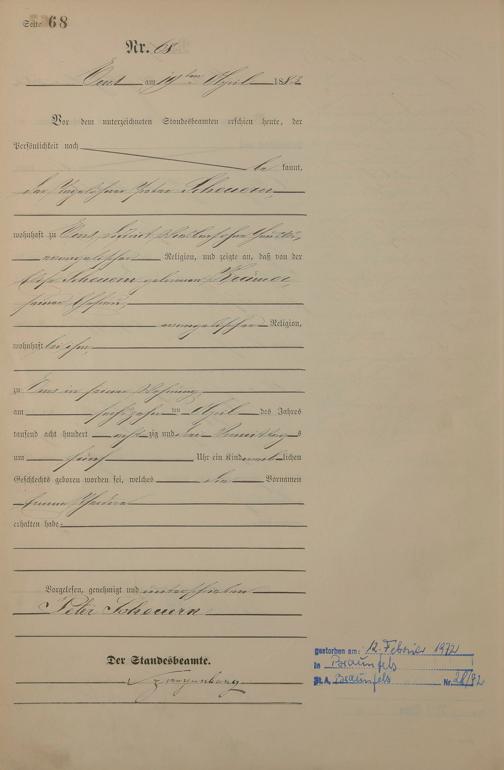 Seite 68
Nr. 68
Ems am 19ten April 188
Vor dem unterzeichneten Standesbeamten erschien heute, der
Persönlichkeit nach
be kannt,
der Peter Scheuern
wohnhaft zu Ems,
evangelischer Religion, und zeigte an, daß von der
Scheuern geborenen
seiner Ehefrau,
evangelischer Religion,
wohnhaft bei ihm
zu Ems in seiner Wohnung
am sechszehn ten April des Jahres
tausend acht hundert acht zig und
um fünf Uhr ein Kind weib lichen
Geschlechts geboren worden sei, welches die Vornamen
Emma
erhalten habe.
Vorgelesen, genehmigt und unterschrieben
Peter Scheuern
Der Standesbeamte.
gestorben am: 12. Februar 1972
in Braunfels
St. A. Braunfels Nr. /72